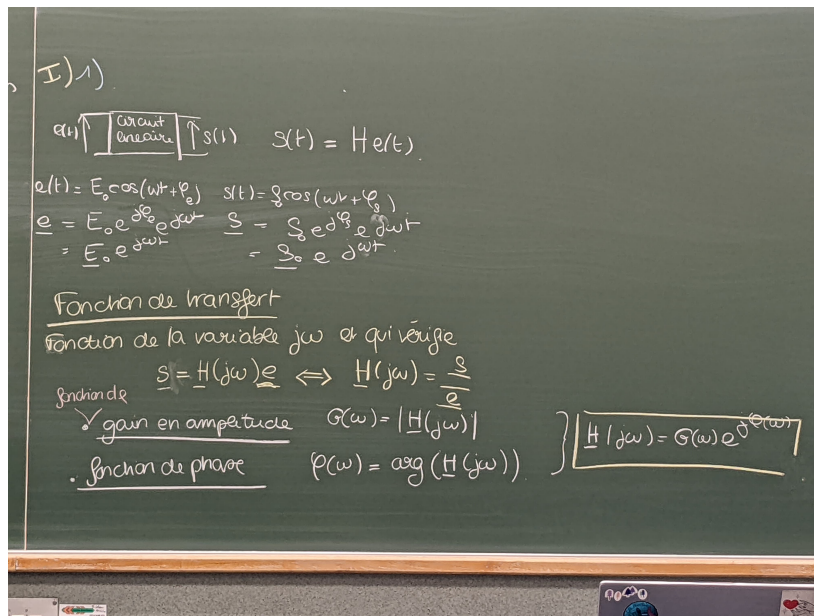 I) 1)
e(t) circuit linéaire s(t) s(t) = H e(t).
e(t) = E₀ cos(ωt + φₑ) s(t) = S₀ cos(ωt + φₛ)
e = E₀ e^{jφₑ} e^{jωt} S = S₀ e^{jφₛ} e^{jωt}
= E₀ e^{jωt} = S₀ e^{jωt}.
Fonction de transfert
Fonction de la variable jω et qui vérifie
S = H(jω) e ⇔ H(jω) = S/e
fonction de
. gain en amplitude G(ω) = |H(jω)|
H(jω) = G(ω) e^{jφ(ω)}
. fonction de phase φ(ω) = arg(H(jω))